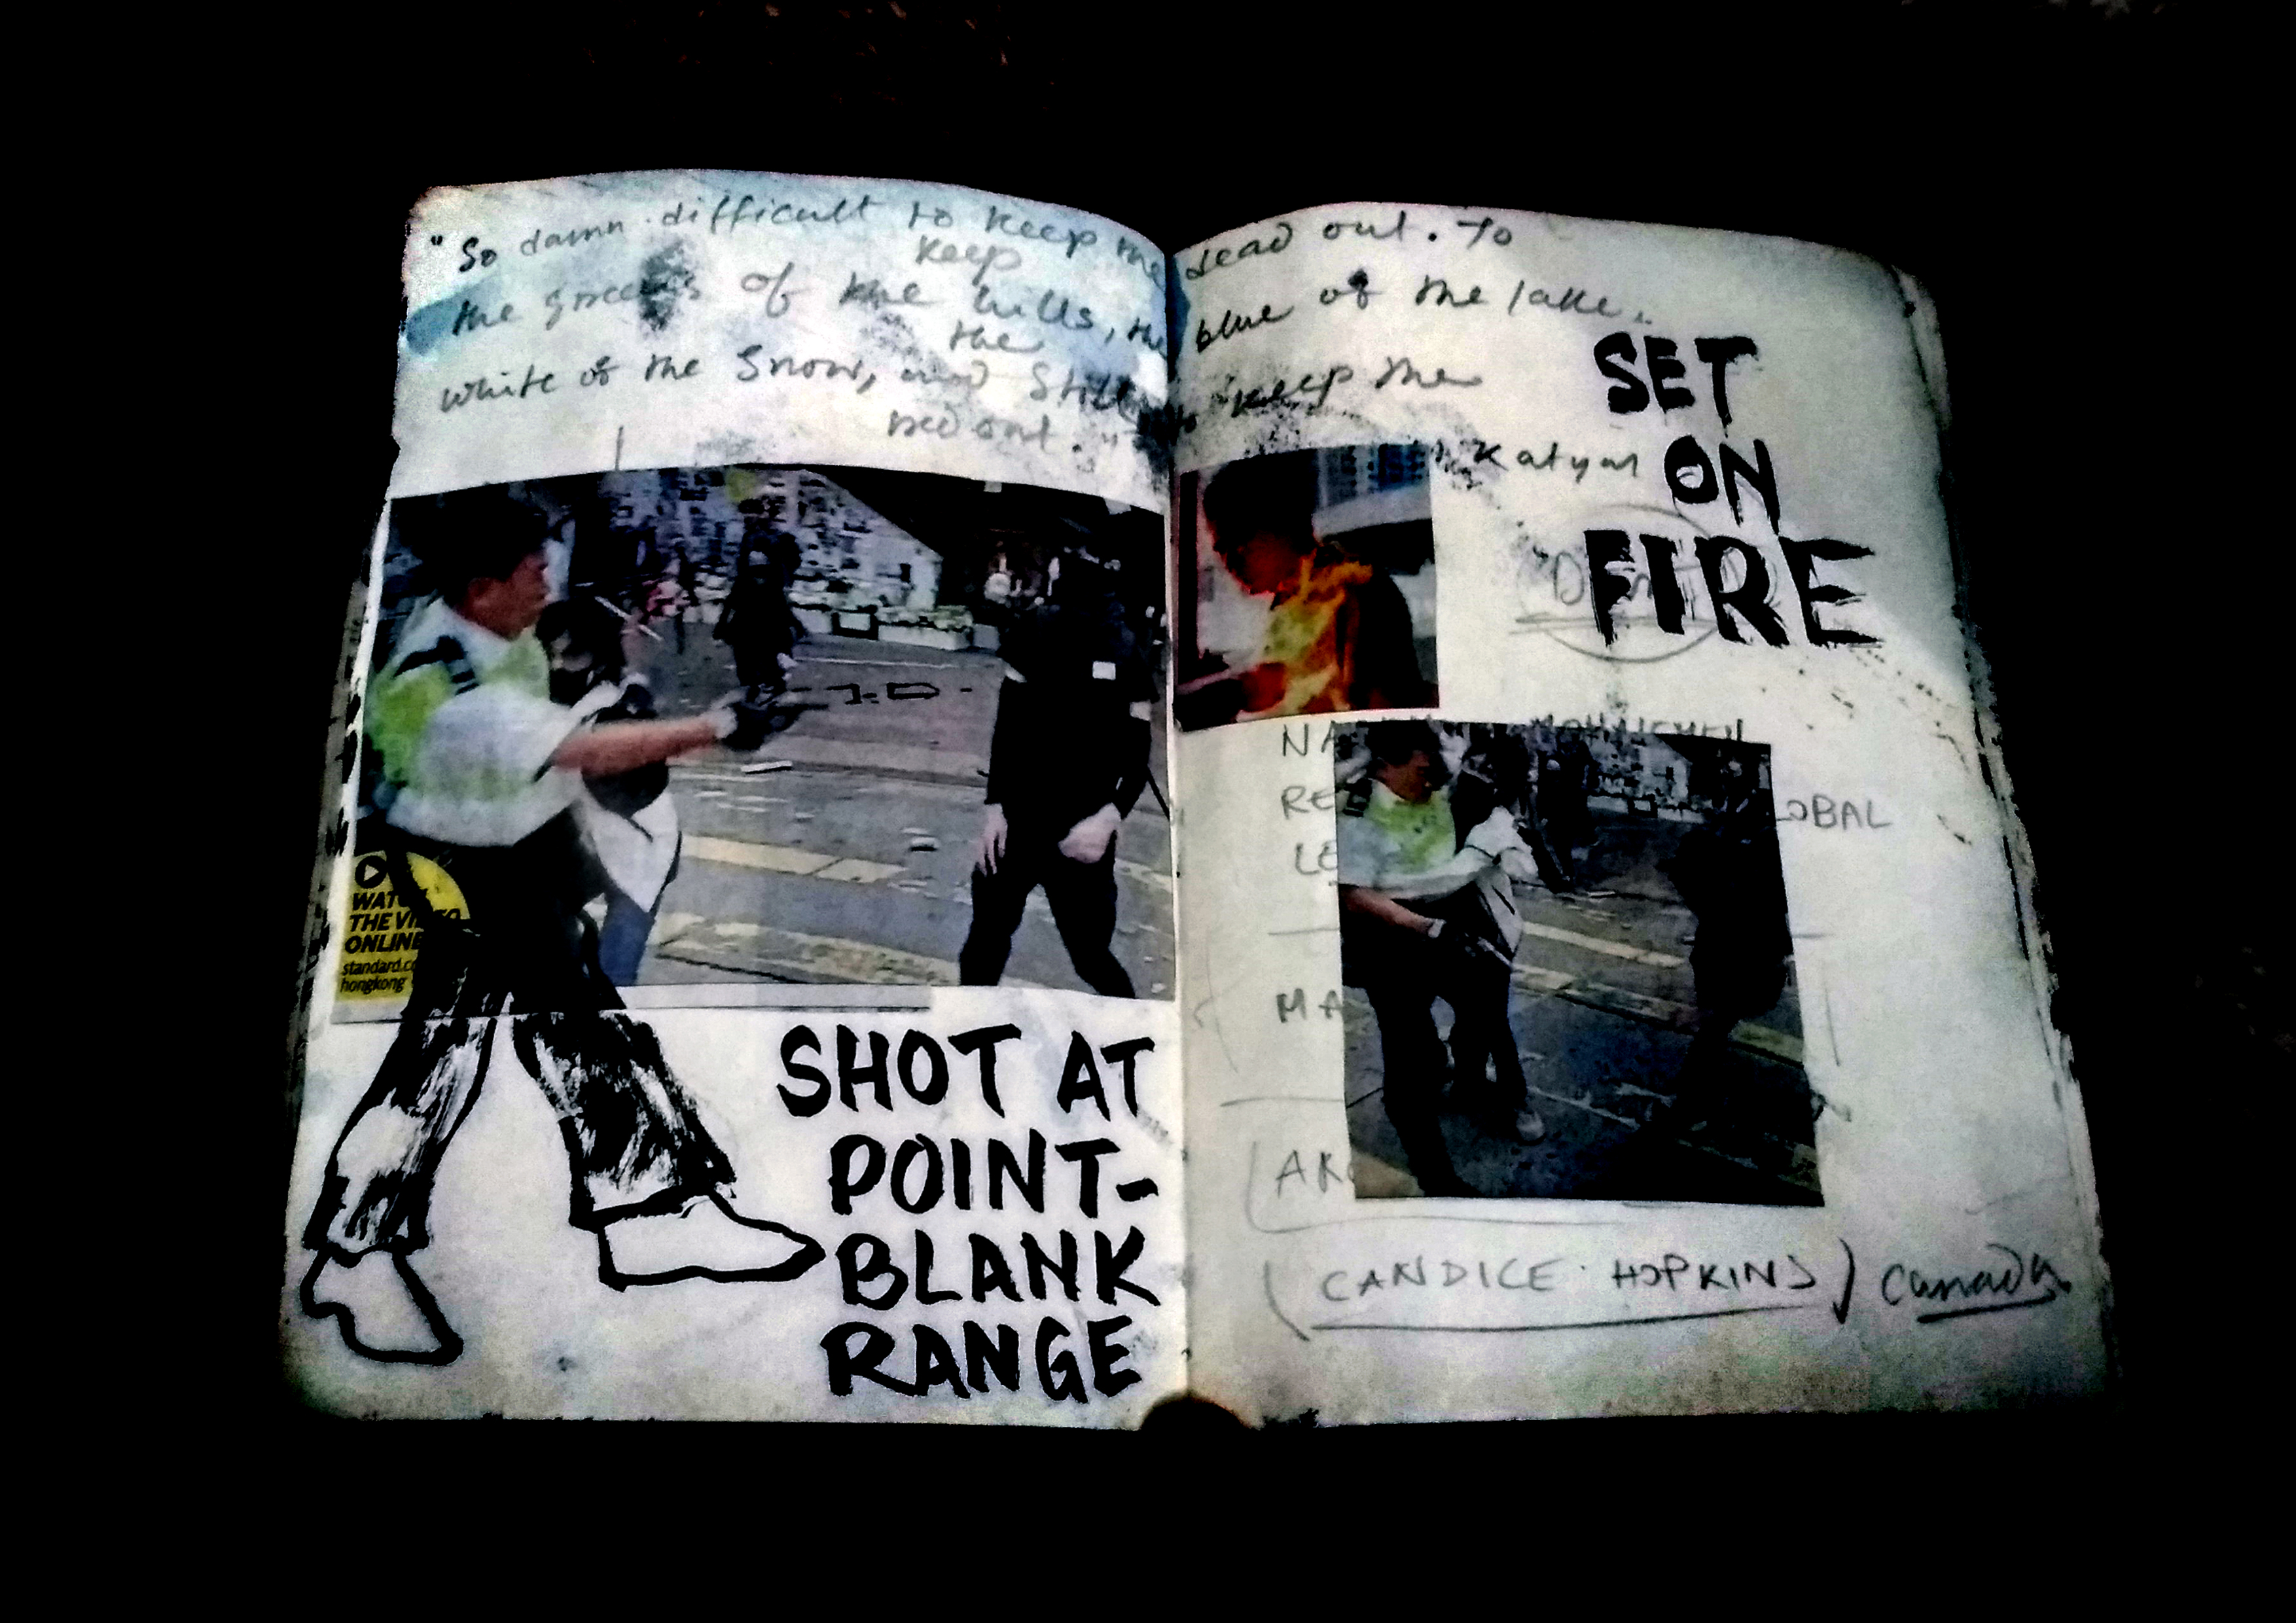 "So damn difficult to keep the dead out. To
keep
the greens of the hills, the blue of the lake,
the
white of the snow, and still to keep the
red out."
Katyal
SET
ON
FIRE
I.D.
WATCH
THE VIDEO
ONLINE
standard.co
hongkong
SHOT AT
POINT-
BLANK
RANGE
NA
RE OBAL
LE
MA
AR
(CANDICE HOPKINS) Canada